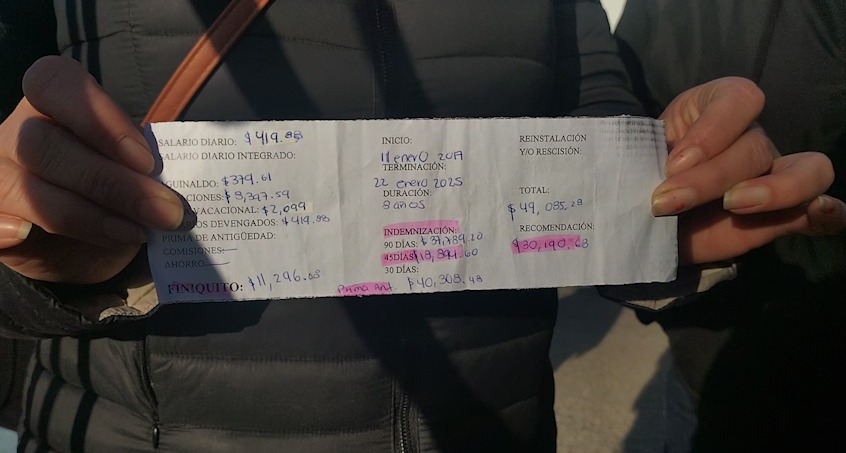 SALARIO DIARIO: $419.88
SALARIO DIARIO INTEGRADO:
GUINALDO: $379.61
CIONES: $8,397.59
VACACIONAL: $2,099
RIOS DEVENGADOS: $419.88
PRIMA DE ANTIGÜEDAD:
COMISIONES:
AHORRO:
FINIQUITO: $11,296.08
INICIO:
11 enero 2017
TERMINACIÓN:
22 enero 2025
DURACIÓN:
8 años
INDEMNIZACIÓN:
90 DÍAS: $37,789.20
45DÍAS: $18,894.60
30 DÍAS:
Prima Ant. $40,308.48
REINSTALACIÓN
Y/O RESCISIÓN:
TOTAL:
$49,085.28
RECOMENDACIÓN:
$30,190.68